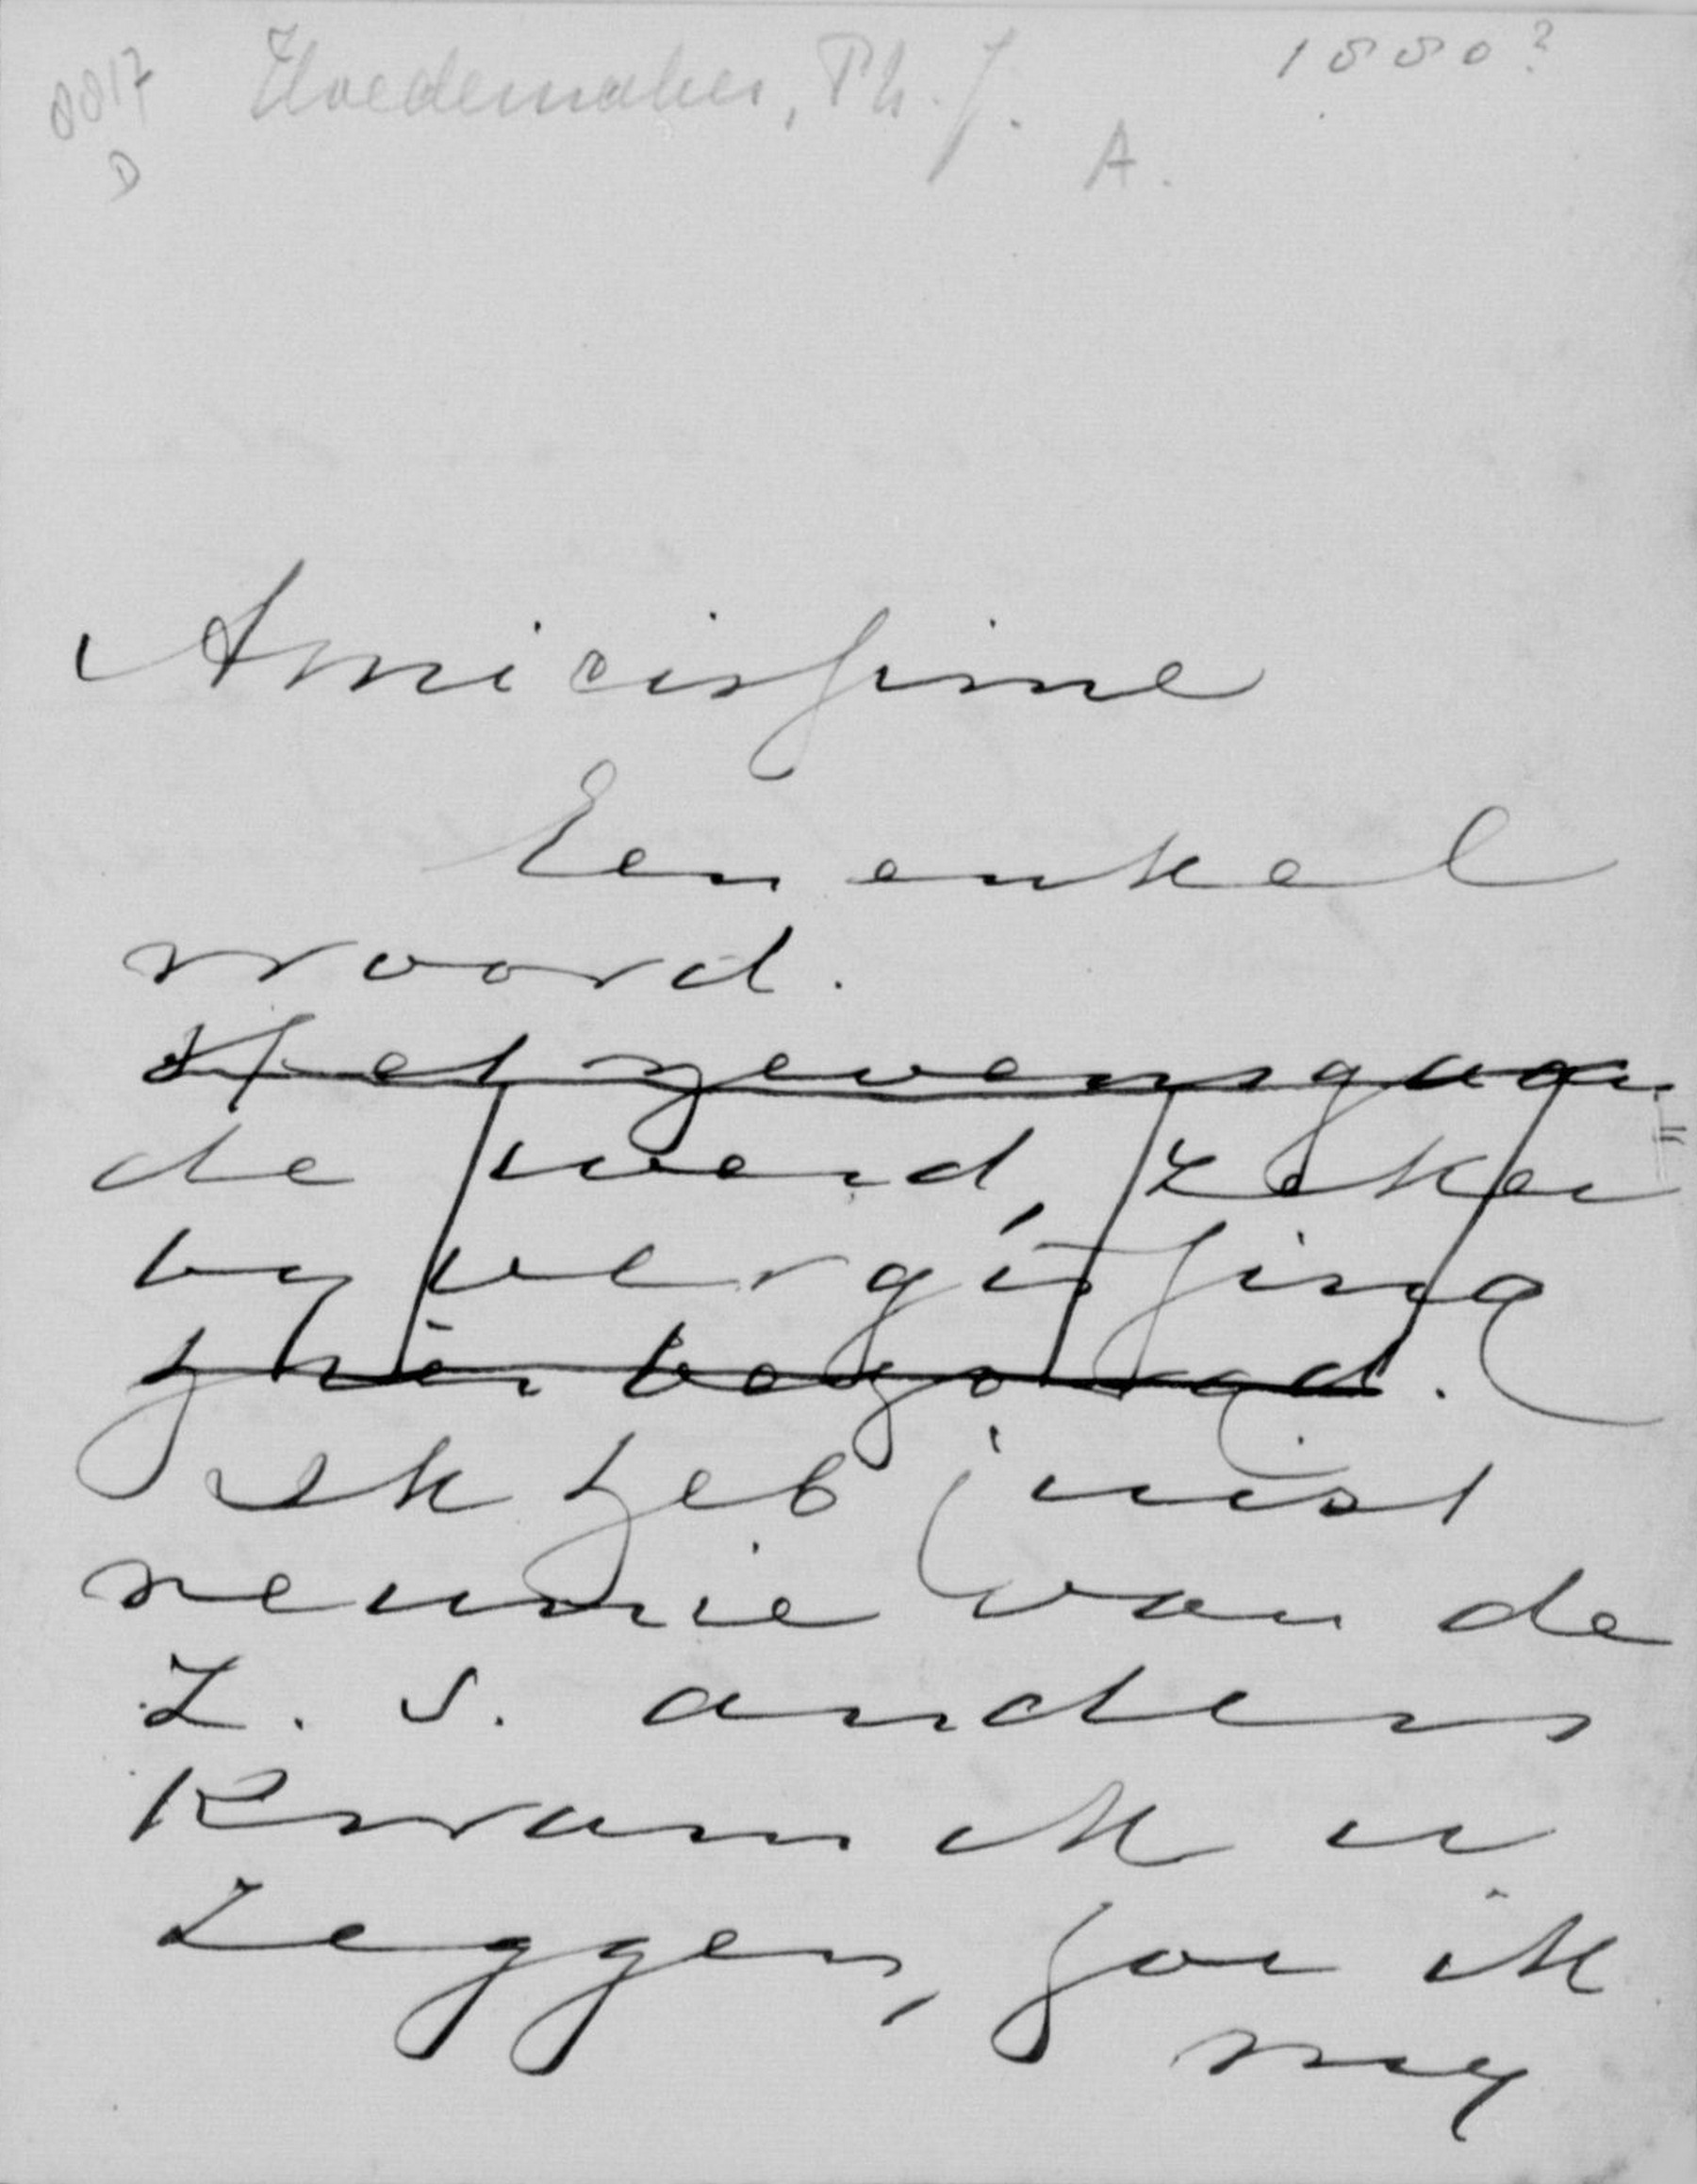 0017 Hoedemaker, Ph. J. 1880?
D A.
Amicissime
Een enkel
woord.
Het nevensgaan=
de werd, zeker
by vergissing
hier bezorgd.
Ik heb juist
reunie van de
Z. S. anders
kwam ik u
zeggen, hoe ik
my